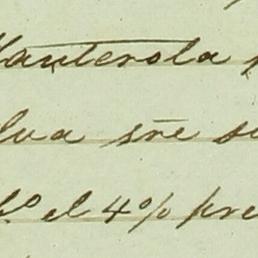 Hauterola
lva sre su
b.º el 4% pre